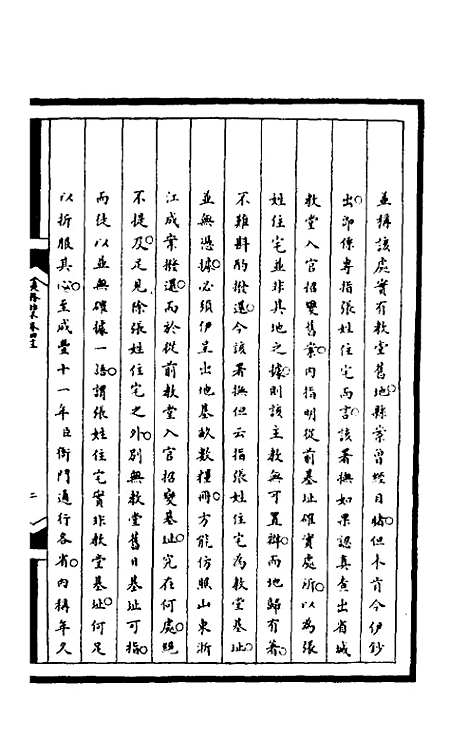 並稱該處實有教堂舊地縣案曾經目睹但不肯令伊鈔
出卽係專指張姓住宅而言該署撫如果認真查出省城
教堂入官招變舊案內指明從前基址確實處所以爲張
姓住宅並非其地之據則該主教無可置辯而地歸有著
不難斟酌撥還今該署撫但云指張姓住宅爲教堂基址
並無憑據必須伊呈出地基畝數糧冊方能仿照山東浙
江成案撥還而於從前教堂入官招變基址究在何處絕
不提及足見除張姓住宅之外別無教堂舊日基址可指
而徒以並無確據一語謂張姓住宅實非教堂基址何足
以折服其心至咸豐十一年臣衙門通行各省內稱年久
二